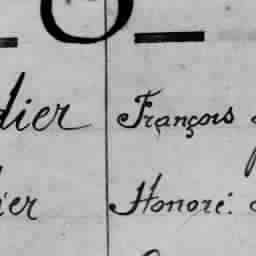 dier François
ier Honoré.